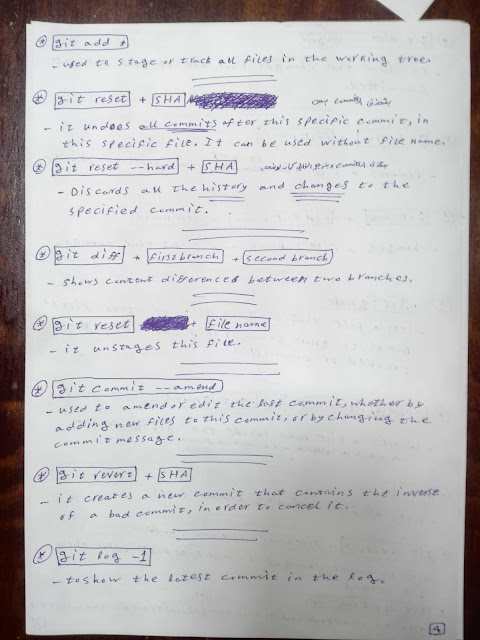 * git add *
- used to stage or track all files in the working tree.
* git reset + SHA
- it undoes all commits after this specific commit, in
this specific file. It can be used without file name.
* git reset --hard + SHA
- Discards all the history and changes to the
specified commit.
* git diff + first branch + second branch
- shows content differences between two branches.
* git reset + file name
- it unstages this file.
* git commit --amend
- used to amend or edit the last commit, whether by
adding new files to this commit, or by changing the
commit message.
* git revert + SHA
- it creates a new commit that contains the inverse
of a bad commit, in order to cancel it.
* git log -1
- to show the latest commit in the log.
4